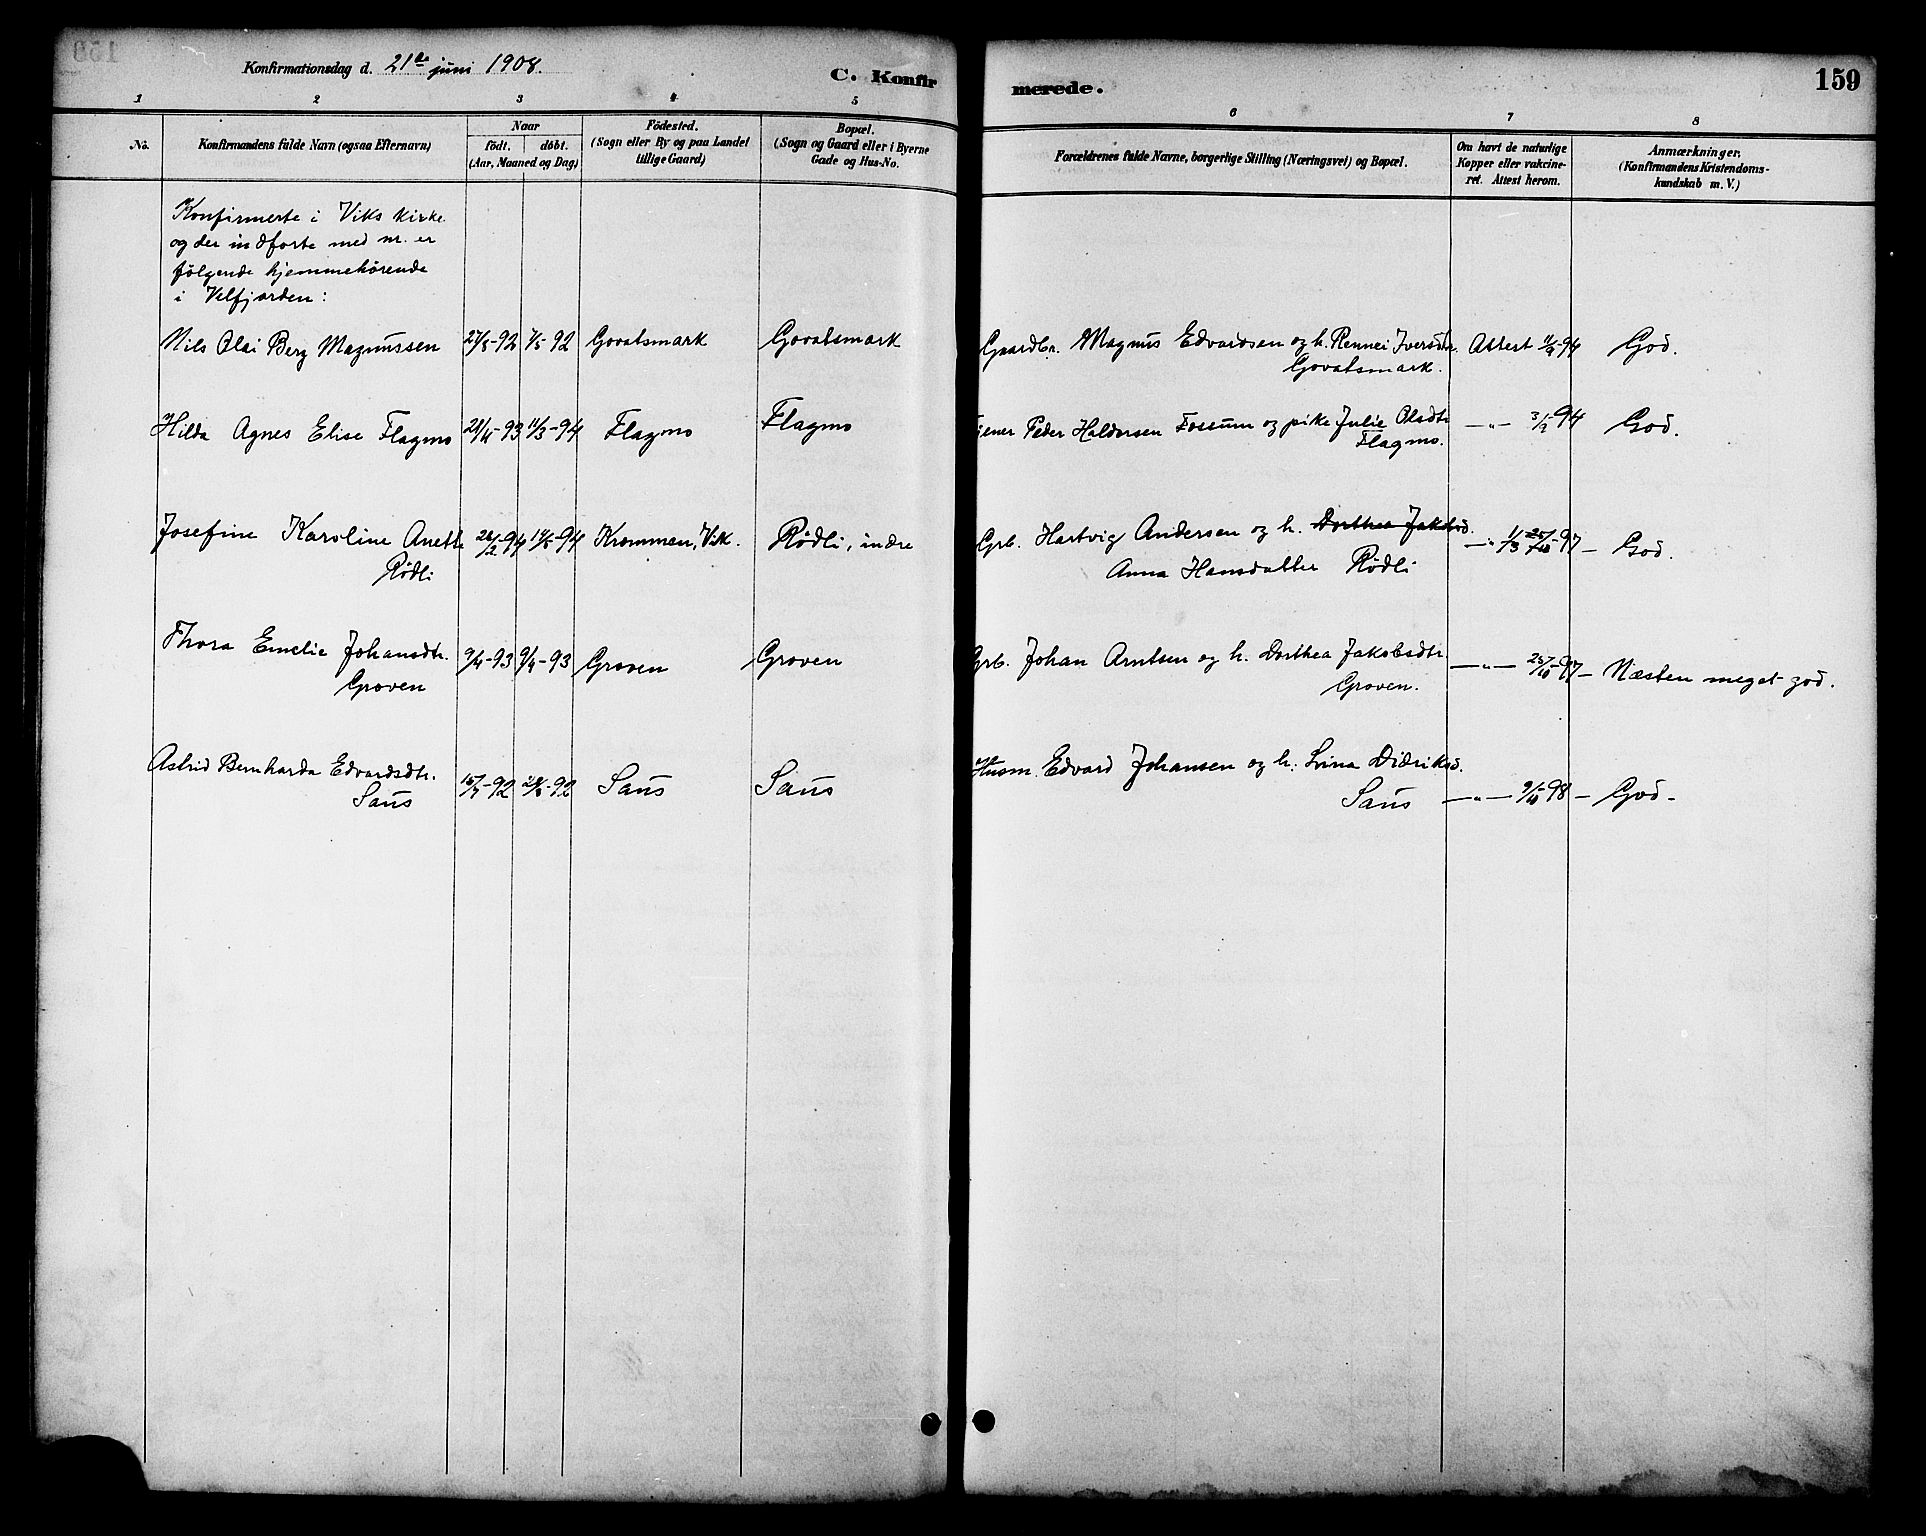 Konfirmationsdag d. 21de juni 1908.
C. Konfirmerede.
159
1 2 3 4 5 6 7 8
No.
Konfirmandens fulde Navn (ogsaa Efternavn)
Naar
födt. döbt.
(Aar, Maaned og Dag)
Födested.
(Sogn eller By og paa Landet
tillige Gaard)
Bopæl.
(Sogn og Gaard eller i Byerne
Gade og Hus-No.
Forældrenes fulde Navne, borgerlige Stilling (Næringsvei) og Bopæl.
Om havt de naturlige
Kopper eller vakcine-
ret. Attest herom.
Anmærkninger.
(Konfirmandens Kristendoms-
kundskab m. V.)
Konfirmerte i Viks kirke
og der indførte med nr. er
følgende hjemmehørende
i Velfjorden:
Nils Olai Berg Magnussen -92 7/5-92 Govatsmark Govatsmark Gaardbr. Magnus Edvardsen og h. Rennei Iversdtr. Attest -94 God.
Govatsmark.
Hilda Agnes Elise Flagmo -93 11/3-94 Flagmo Flagmo Tjener Peder Haldorsen Fossum og pike Julie Olsdtr. —"— 3/2 94 God.
Flagmo.
Josefine Karoline Aneth 26/2-94 -94 Krommen, Vik. Rödli, indre Grb. Hartvig Andersen og h. Dorthea Jakobsd. —"— -97 — God.
Rödli Anna Hansdatter Rödli
Thora Emelie Johansdtr. 9/4-93 9/4-93 Groven Groven Grb. Johan Arntsen og h. Dorthea Jakobsdtr. —"— 25/10-97 — Næsten meget god.
Groven Groven.
Astrid Bernharda Edvardsdtr. -92 -92 Saus Saus Husm. Edvard Johansen og h. Didriksd.
Saus Saus —"— 9/10-98 — God.